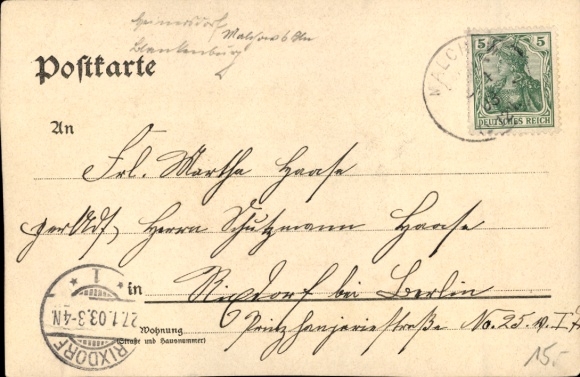 Heinersdorf
Malchow b Bln
Blankenburg
Postkarte
MALCHOW
5 5
DEUTSCHES REICH
An
Frl. Martha Haase
per Adr. Herrn Schutzmann Haase
in Rixdorf bei Berlin
Wohnung
(Straße und Hausnummer)
Prinz Handjeriestraße No. 25. v. I
RIXDORF
* 1 *
27.1.03.3-4N.
15.-